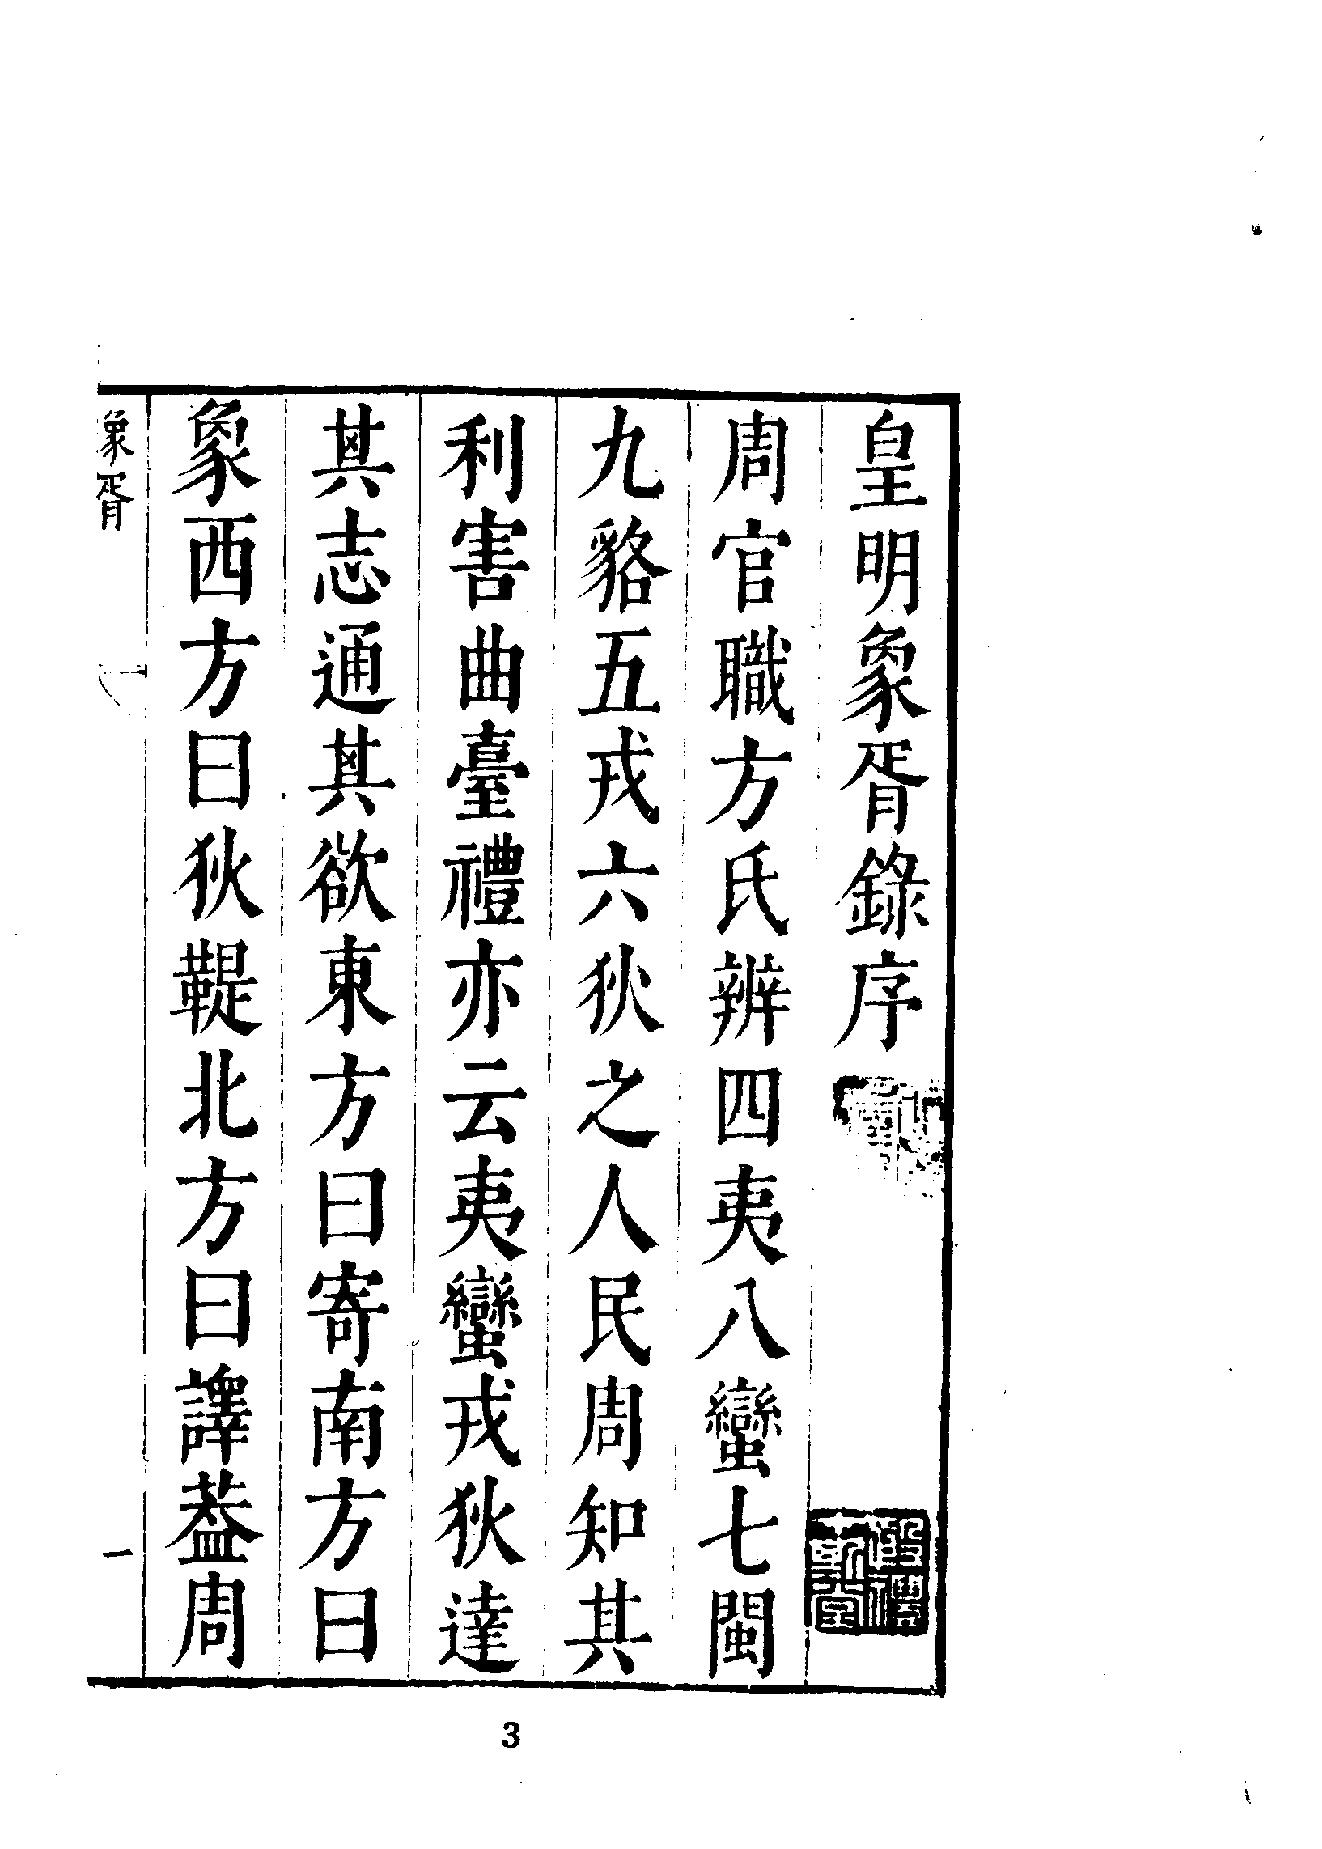 皇明象胥錄序
周官職方氏辨四夷八蠻七閩
九貉五戎六狄之人民周知其
利害曲臺禮亦云夷蠻戎狄達
其志通其欲東方曰寄南方曰
象西方曰狄鞮北方曰譯葢周
象胥
一
3